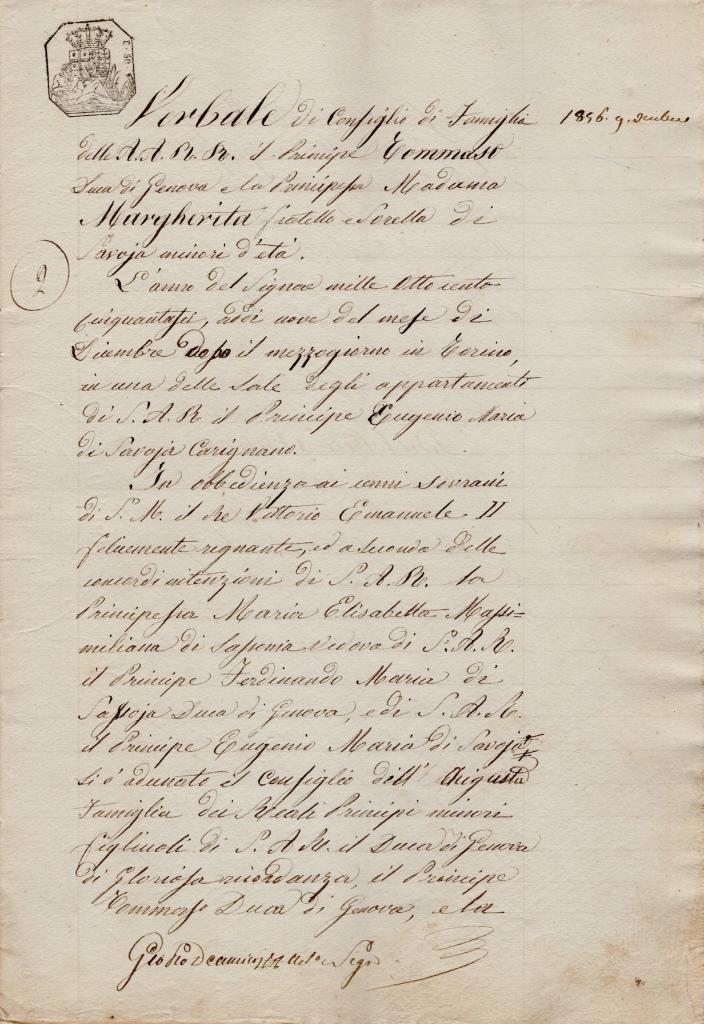 C. 50
Verbale di Consiglio di Famiglia
1856. 9. Dicembre
delle A.A. R.R. il Principe Tommaso
Duca di Genova e la Principessa Madama
Margherita fratello e Sorella di
Savoja minori d'età.
2
L'anno del Signore mille Otto cento
cinquantasei, addi nove del mese di
Dicembre dopo il mezzogiorno in Torino,
in una delle Sale degli appartamenti
di S. A. R. il Principe Eugenio Maria
di Savoja Carignano.
In obbedienza ai cenni Sovrani
di S. M. il Re Vittorio Emanuele II
felicemente regnante, ed a seconda delle
concordi intenzioni di S. A. R. la
Principessa Maria Elisabetta Massi=
miliana di Sassonia Vedova di S. A. R.
il Principe Ferdinando Maria di
Savoja Duca di Genova, e di S. A. R.
il Principe Eugenio Maria di Savoja
Si è adunato il Consiglio dell' Augusta
Famiglia dei Reali Principi minori
figliuoli di S. A. R. il Duca di Genova
di Gloriosa ricordanza, il Principe
Tommaso Duca di Genova, e la
Segr.